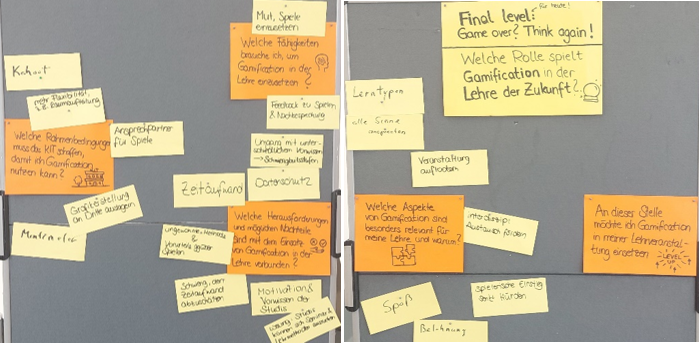 Mut, Spiele
einzusetzen
Welche Fähigkeiten
brauche ich, um
Gamification in der
Lehre einzusetzen?
Kahoot
mehr Flexibilität,
z.B. Raumaufteilung
Feedback zu Spielen
& Nachbesprechung
Welche Rahmenbedingungen
muss das KIT schaffen,
damit ich Gamification
nutzen kann?
Ansprechpartner
für Spiele
Umgang mit unter-
schiedlichem Vorwissen
→ Schwierigkeitsstufen
Zeitaufwand
Datenschutz
Grafikerstellung
an Dritte auslagern
Mentimeter
Welche Herausforderungen
und möglichen Nachteile
sind mit dem Einsatz
von Gamification in der
Lehre verbunden?
ungewohnte Methode
&
Vorurteile gegenüber
Spielen
Schwierig, den
Zeitaufwand
abzuschätzen
Motivation &
Vorwissen der
Studis
Studis
können sich
Final level:
für heute!
Game over? Think again!
Welche Rolle spielt
Gamification in der
Lehre der Zukunft?
Lerntypen
alle Sinne
ansprechen
Veranstaltung
auflockern
Welche Aspekte
von Gamification sind
besonders relevant für
meine Lehre und warum?
interdiszipl.
Austausch fördern
An dieser Stelle
möchte ich Gamification
in meiner Lehrveranstal-
tung einsetzen
LEVEL
UP
Spaß
spielerischer Einstieg
senkt Hürden
Belohnung